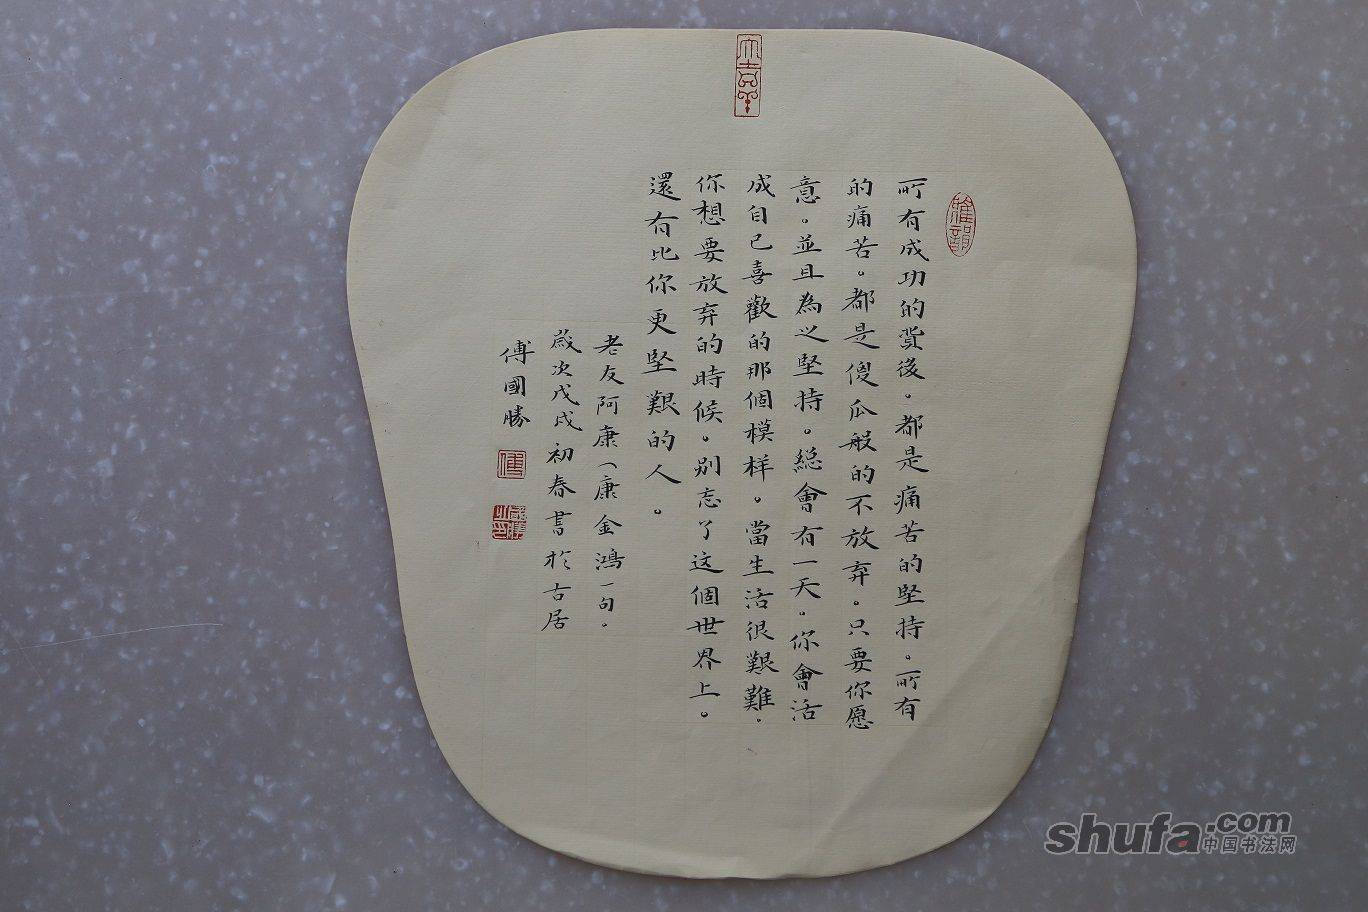 所有成功的背後。都是痛苦的堅持。所有
的痛苦。都是傻瓜般的不放弃。只要你愿
意。並且為之堅持。総會有一天。你會活
成自己喜歡的那個模样。當生活很艱難。
你想要放弃的時候。别忘了这個世界上。
還有比你更堅艱的人。
老友阿康（康金鴻一句。
歲次戊戌初春書於古居
傅國勝
大吉羊
傅
shufa.com
中国书法网